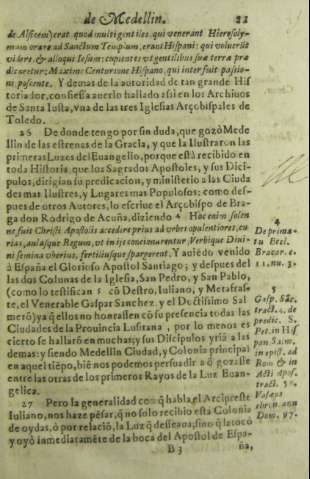 de Medellin. 21
de Alscensv) erat quod multi gentiles, qui venerant Hierosoly-
mam orare ad Sanctum Templum, erant Hispani: qui voluerūt
videre, & alloqui Iesum: cupientes vt gentilibus suæ terræ præ
dicaretur; Maximè Centurione Hispano, qui interfuit passio-
ni, poscente. Y demas de la autoridad de tan grande His
toriador, confiessa auerlo hallado assi en los Archiuos
de Santa Iusta, vna de las tres Iglesias Arçobispales de
Toledo.
26 De donde tengo por sin duda, que gozò Mede
llin de las estrenas de la Gracia, y que la Ilustraron las
primeras Luzes del Euangelio, porque està recibido en
toda Historia, que los Sagrados Apostoles, y sus Dici-
pulos, dirigian su predicacion, y ministerio a las Ciuda
des mas Ilustres, y Lugares mas Populosos: como des-
pues de otros Autores, lo escriue el Arçobispo de Bra-
ga don Rodrigo de Acuña, diziendo 4 Hoc enim solem
ne fuit Christi Apostolis accedere prius ad vrbes opulentiores, cu
rias, aulasque Regum, vt in ijs concionarentur, Verbique Diui-
ni semina vberius, fertiliusque spargerent. Y auiēdo venido
à España el Glorioso Apostol Santiago; y despues del
las dos Colunas de la Iglesia, San Pedro, y San Pablo,
(como lo testifican 5 cō Destro, Iuliano, y Metafras-
te, el Venerable Gaspar Sanchez y el Doctissimo Sal
merō) ya q̄ ellos no honrassen cō su presencia todas las
Ciudades de la Prouincia Lusitana, por lo menos es
cierto se hallarō en muchas; y sus Dicipulos yriā a las
demas: y siendo Medellin Ciudad, y Colonia principal
en aquel tiēpo, biē nos podemos persuadir a q̄ gozasse
entre las otras de los primeros Rayos de la Luz Euan-
gelica.
27 Pero la generalidad con q̄ habla, el Arcipreste
Iuliano, nos haze pēsar, q̄ no solo recibio esta Colonia
de oydas, ò por relaciō, la Luz q̄ desseaua, sino q̄ la tocò
y oyò inmediatamēte de la boca del Apostol de Espa-
B 3 ña,
4
De prima-
tu Eccl.
Bracar. c.
11. nu. 3.
5
Gasp. Sāc.
tract. 2. de
predic. S.
Pet. in His
pan. Salm.
in epist. ad
Rom. & in
Acti Apost.
tract. 5.
chron. ann
Dom. 97.